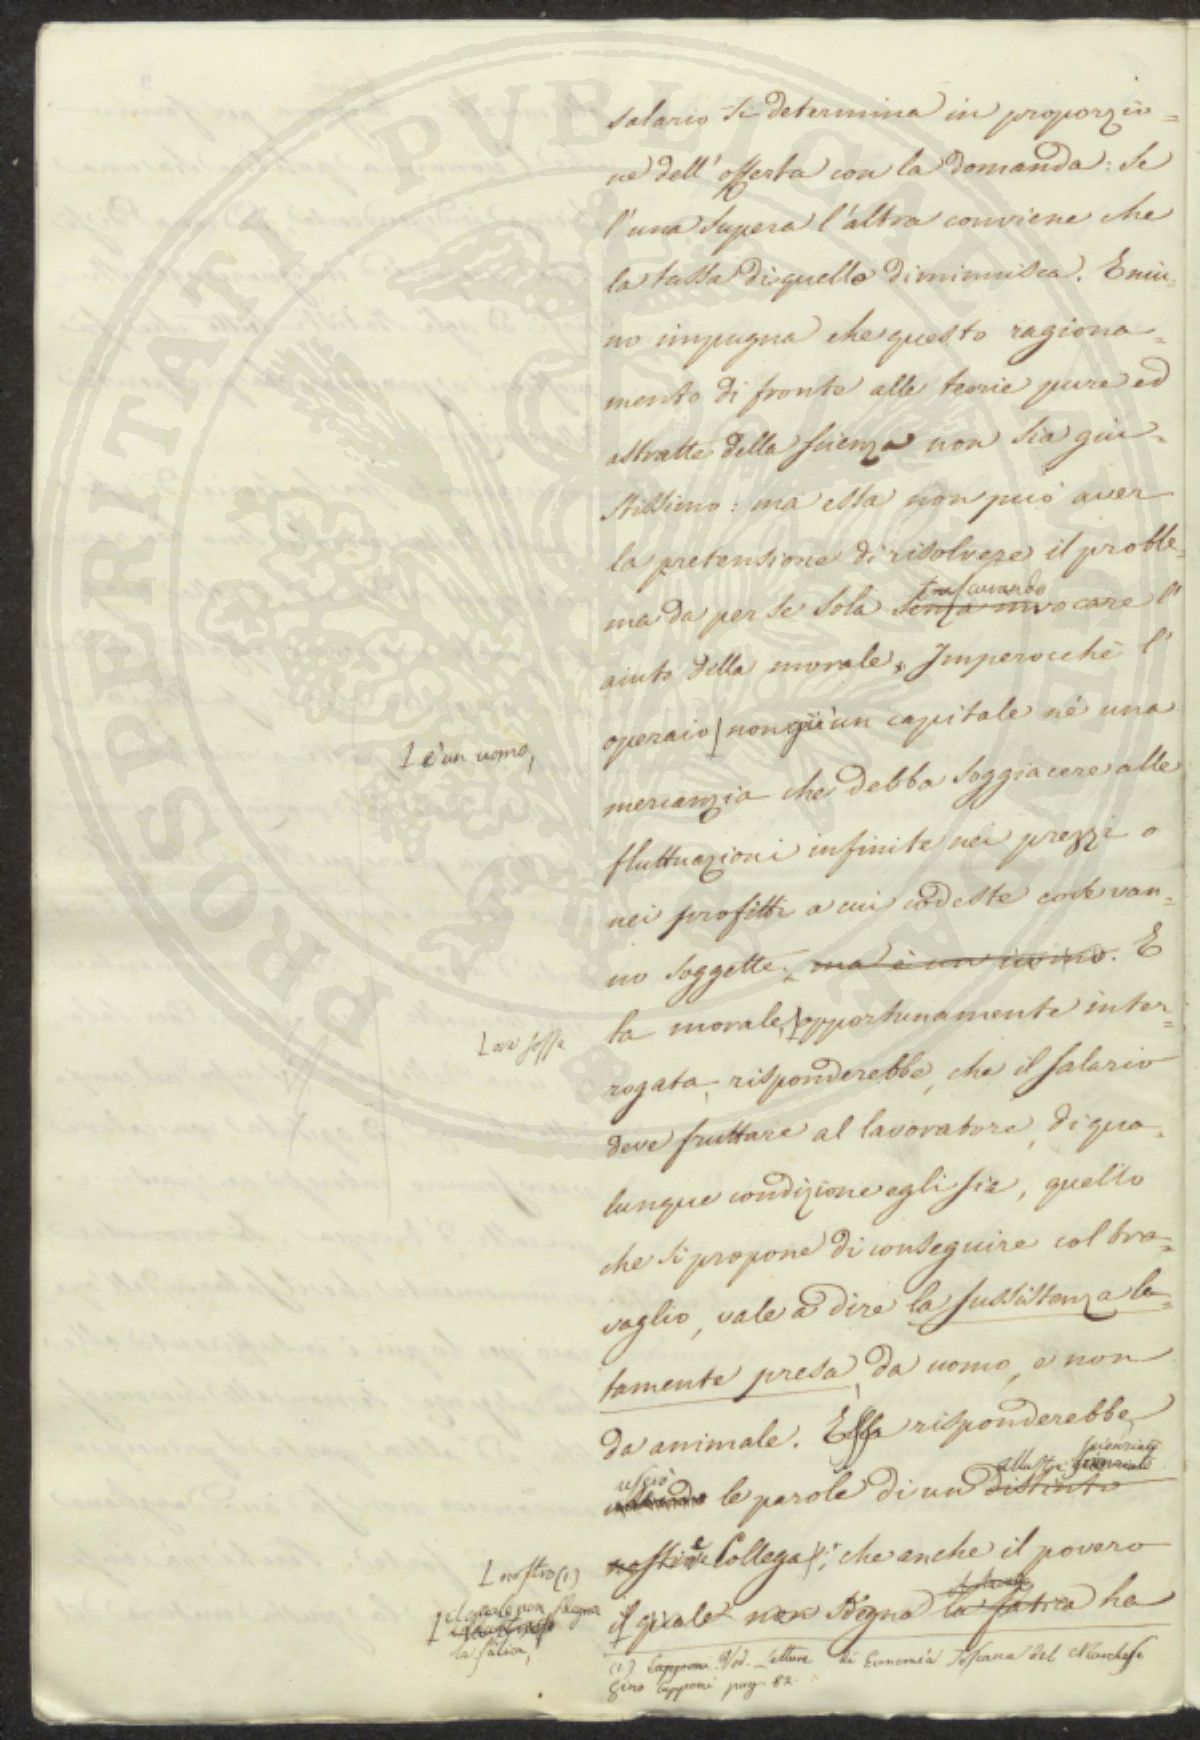 salario si determina in proporzio=
ne dell'offerta con la domanda: se
l'una supera l'altra conviene che
la tassa di quello diminuisca. E niu=
no impugna che questo ragiona=
mento di fronte alle teorie pure ed
astratte della scienza non sia giu=
stissimo: ma essa non può aver
la pretensione di risolvere il proble=
trascurando
ma da per se sola senza invocare l'
aiuto della morale. Imperocchè l'
operaio non già un capitale nè una
è un uomo,
mercanzia che debba soggiacere alle
fluttuazioni infinite nei prezzi o
nei profitti a cui codeste cose van=
no soggette. ma è un uomo. E
la morale, opportunamente inter=
ove fosse
rogata, risponderebbe, che il salario
deve fruttare al lavoratore, di qua=
lunque condizione egli sia, quello
che si propone di conseguire col tra=
vaglio, vale a dire la sussistenza le=
tamente presa, da uomo, e non
da animale. Essa risponderebbe,
illustre scienziato
le parole di un distinto
Collega; che anche il povero
nostro (1)
il quale non sdegna la fatica ha
il quale non sdegna
la fatica,
(1) Capponi Ved. Letture di Economia Toscana del Marchese
Gino Capponi pag. 82.
PROSPERITATI PUBLICAE AUGENDAE